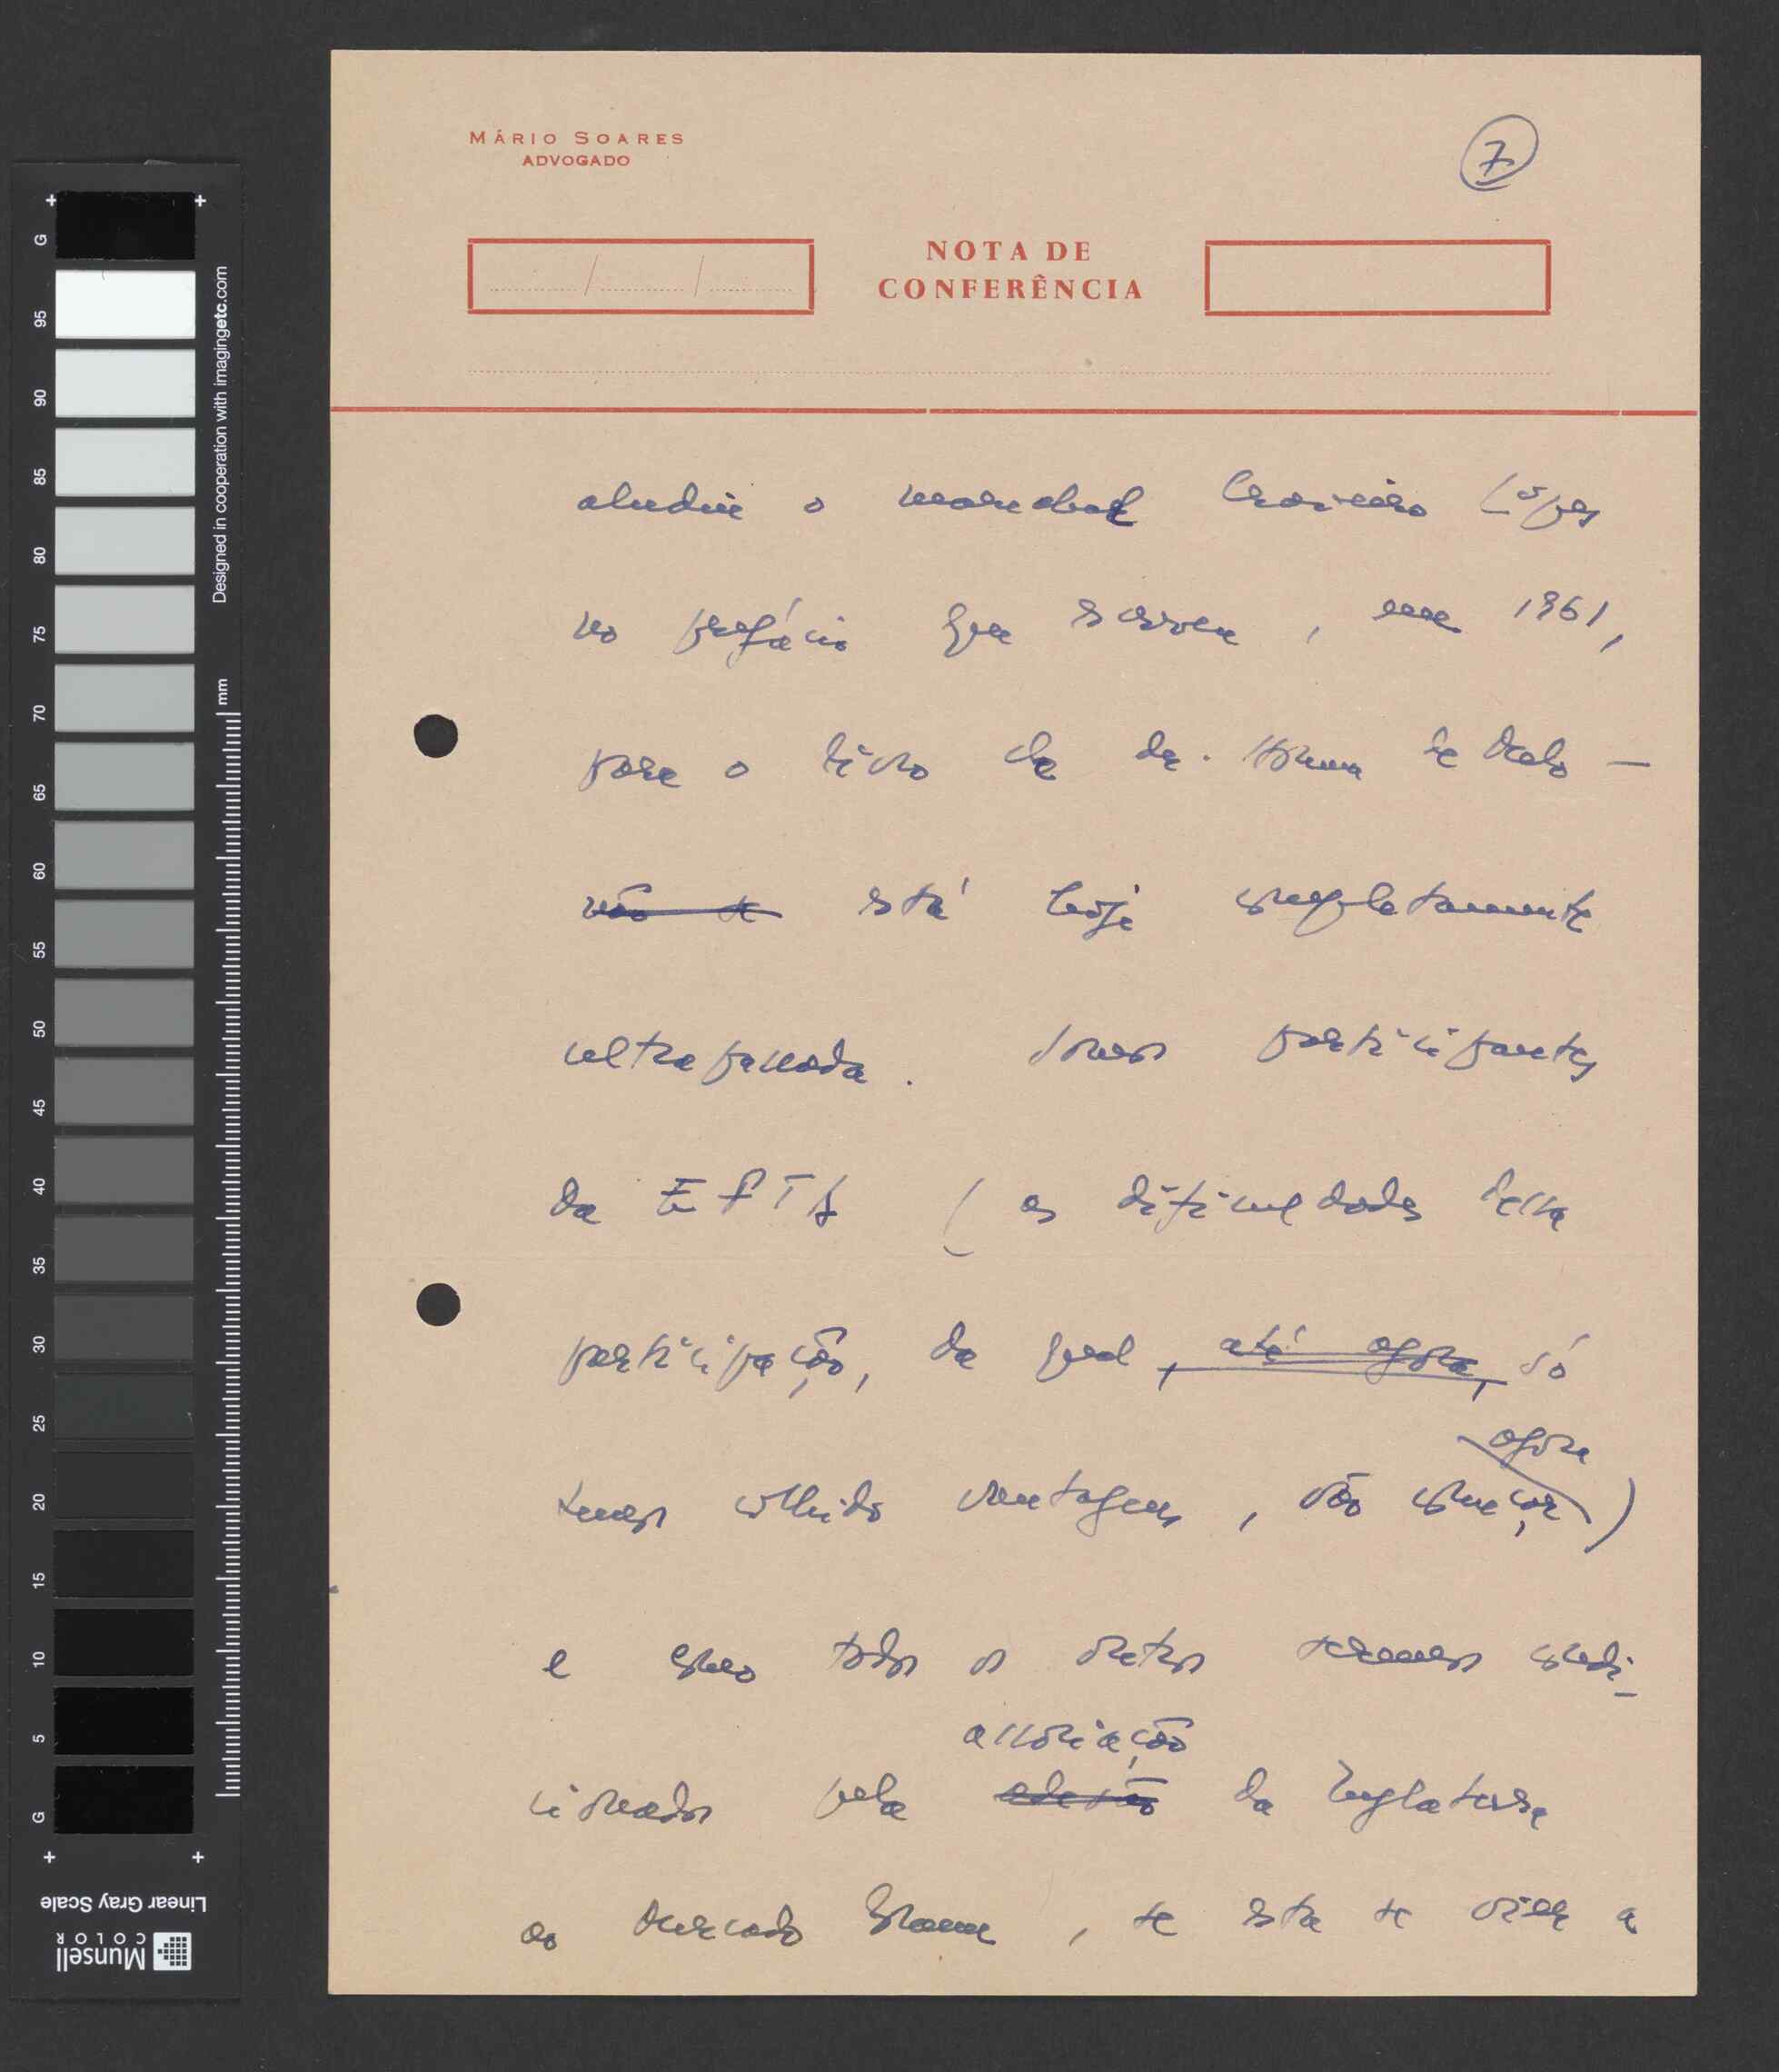 MÁRIO SOARES
ADVOGADO
7
NOTA DE
CONFERÊNCIA
aludiu o marechal Craveiro Lopes
no prefácio que escreveu, em 1961,
para o livro de de. de Melo —
não se está hoje completamente
ultrapassada. Somos participantes
da EFTA (as dificuldades dessa
participação, da qual, até agora, só
agora
temos colhido vantagens, vão começar)
e como todos os outros seremos condi-
associação
cionados pela adesão da Inglaterra
ao Mercado Comum, se esta se vier a
G
95
90
85
80
75
70
65
60
55
50
45
40
35
30
25
20
15
10
5
G
mm
Designed in cooperation with imagingetc.com
Linear Gray Scale
Munsell
COLOR